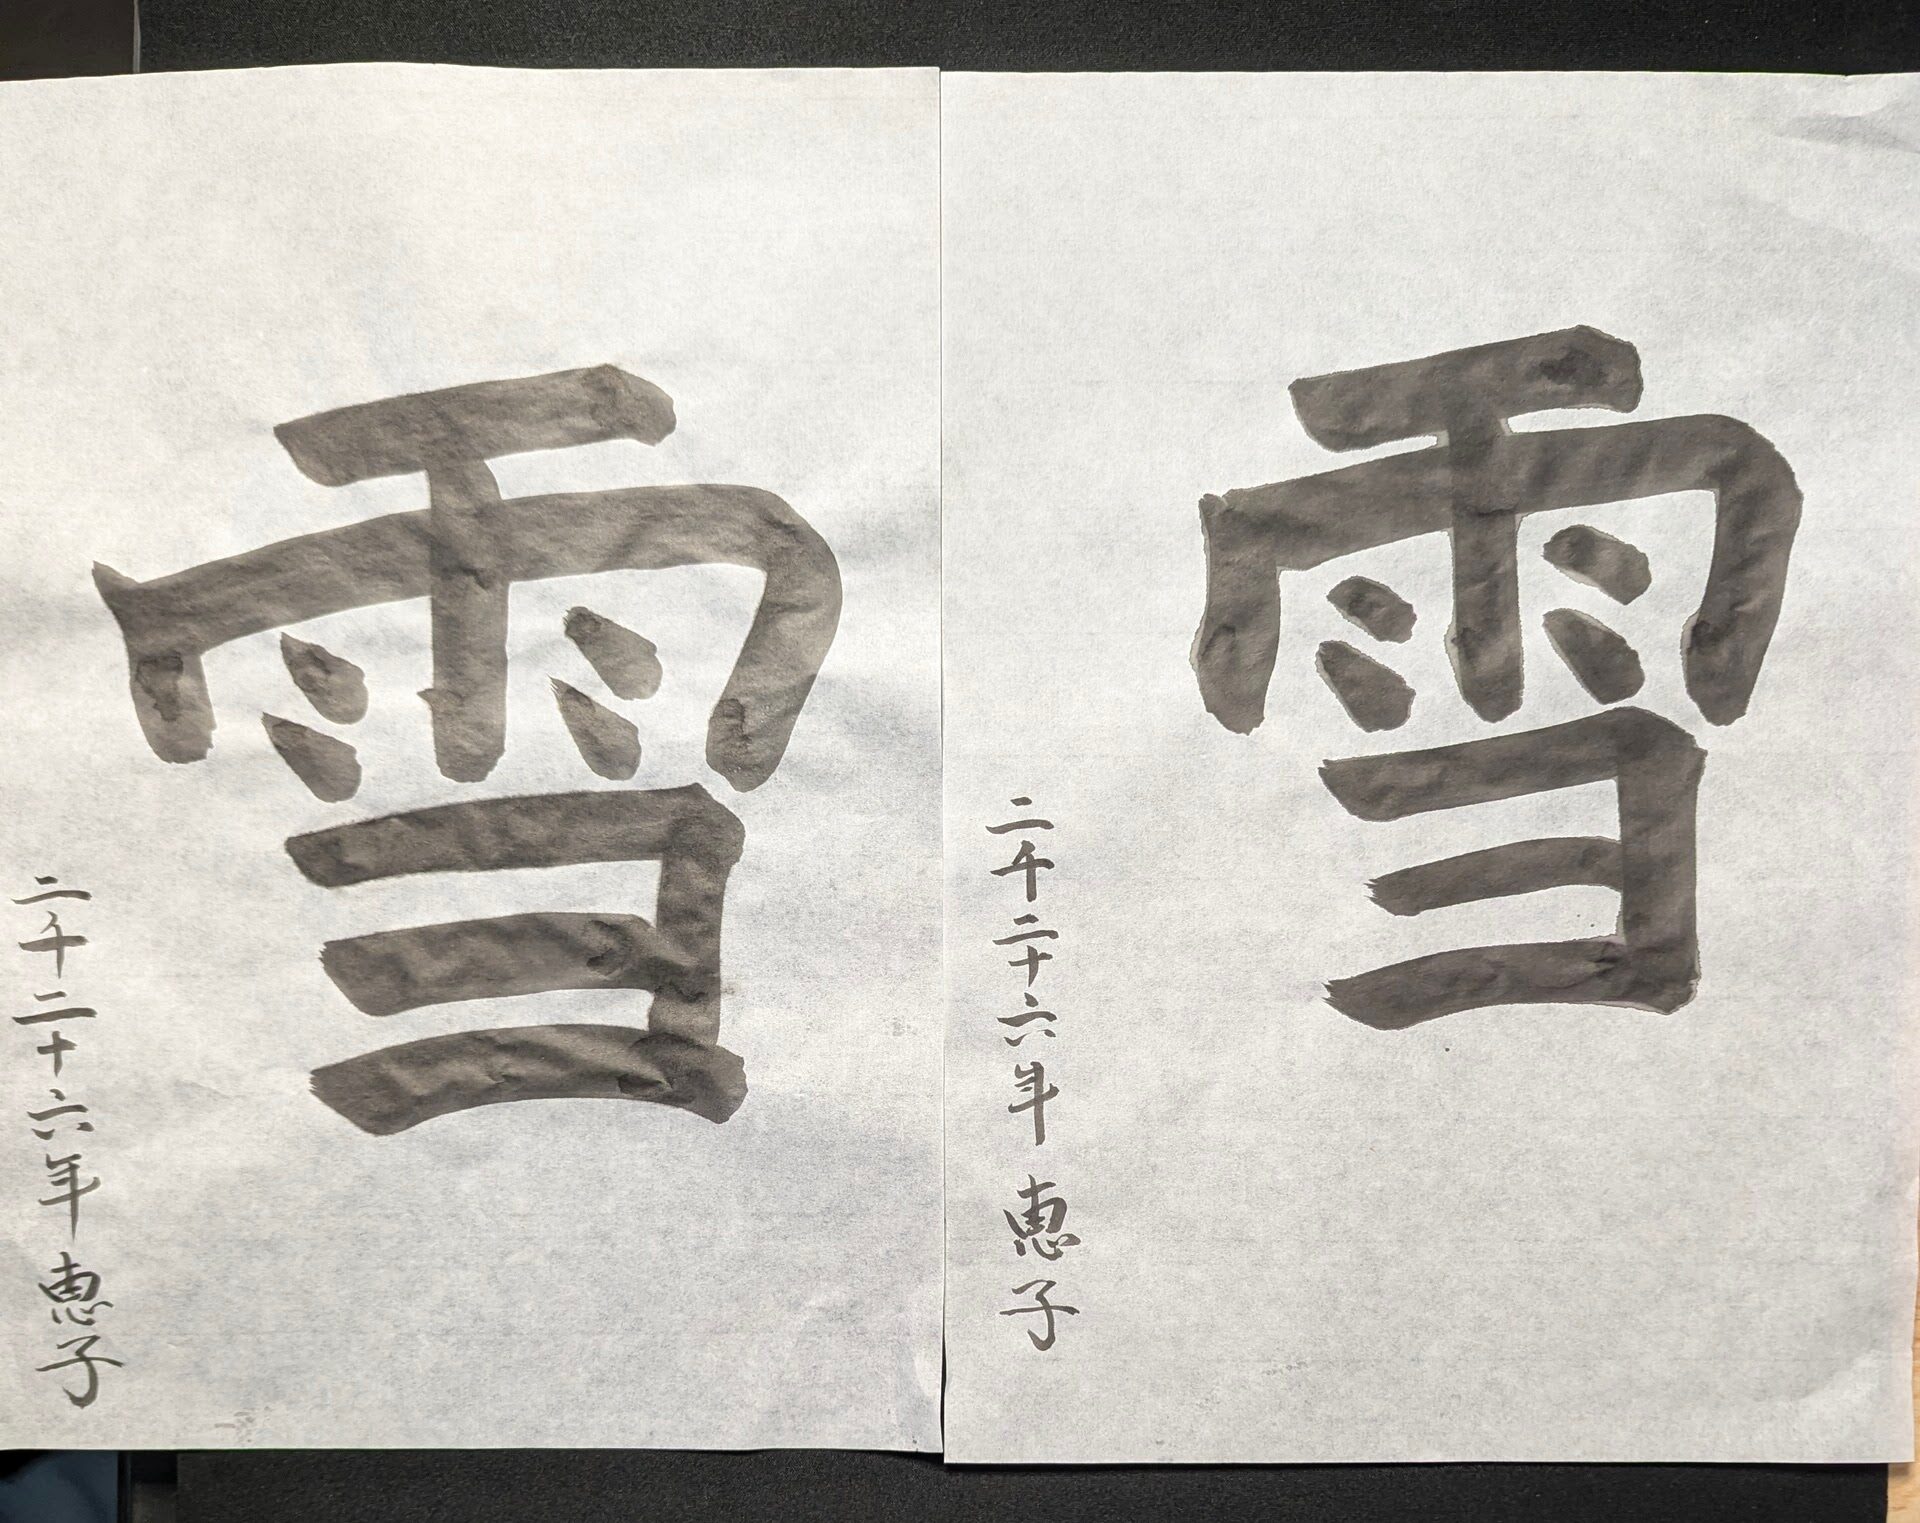 雪
二千二十六年 恵子
雪
二千二十六年 恵子